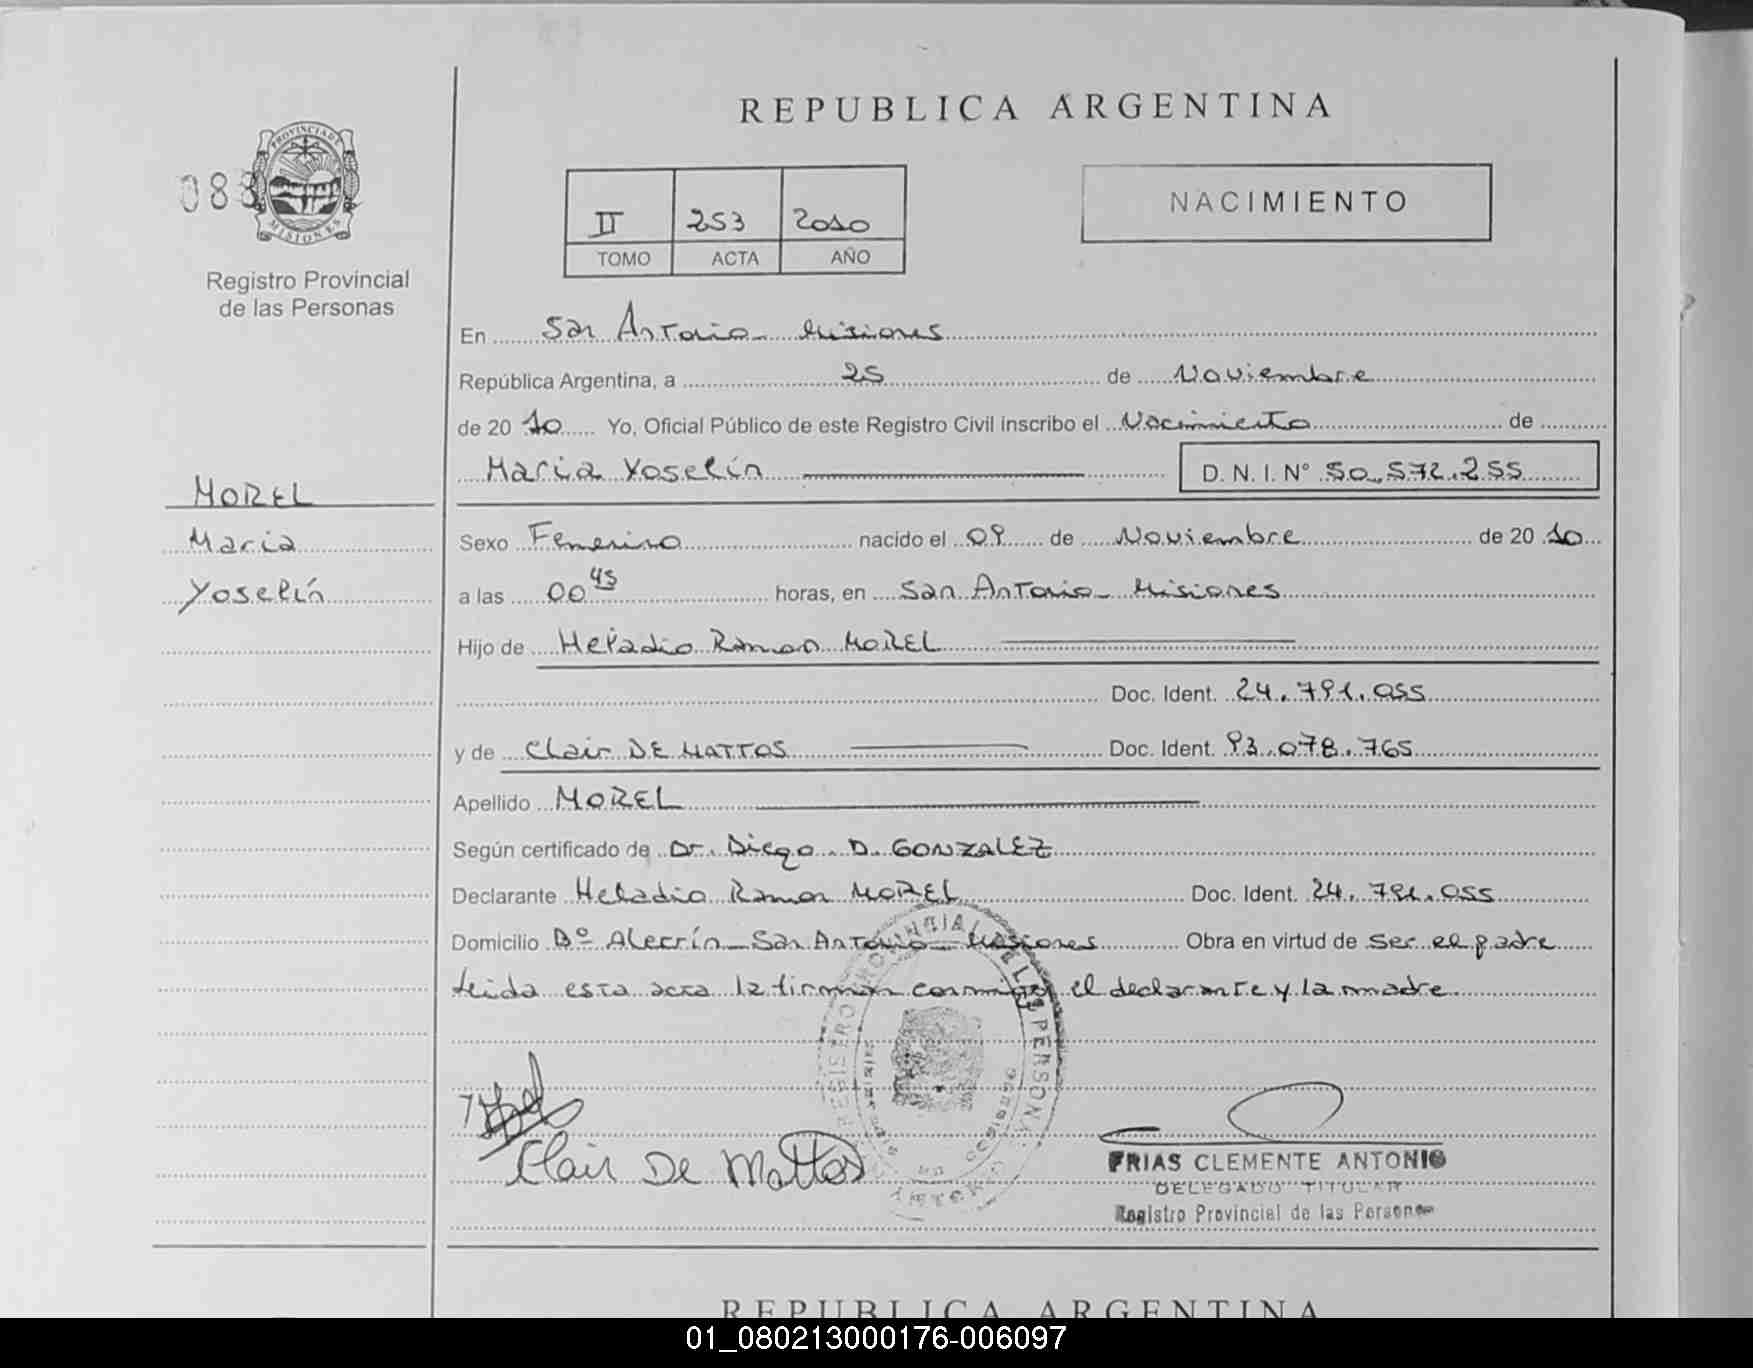 REPUBLICA ARGENTINA
088
PROVINCIA DE MISIONES
Registro Provincial
de las Personas
II 253 2010
TOMO ACTA AÑO
NACIMIENTO
En San Antonio - Misiones
República Argentina, a 25 de Noviembre
de 2010 Yo, Oficial Público de este Registro Civil inscribo el Nacimiento de
Maria Yoselín D. N. I. N° 50.572.255
MOREL
Maria
Yoselín
Sexo Femenino nacido el 09 de Noviembre de 2010
a las 00 45 horas, en San Antonio - Misiones
Hijo de Heladio Ramon MOREL
Doc. Ident. 24.791.055
y de Clair DE MATTOS Doc. Ident. 93.078.765
Apellido MOREL
Según certificado de Dr. Diego D. GONZALEZ
Declarante Heladio Ramon MOREL Doc. Ident. 24.791.055
Domicilio Bº Alecrín - San Antonio - Misiones Obra en virtud de ser el padre
Leida esta acta la firman conmigo el declarante y la madre
Clair De Mattos
FRIAS CLEMENTE ANTONIO
DELEGADO TITULAR
Registro Provincial de las Personas
REPUBLICA ARGENTINA
01_080213000176-006097